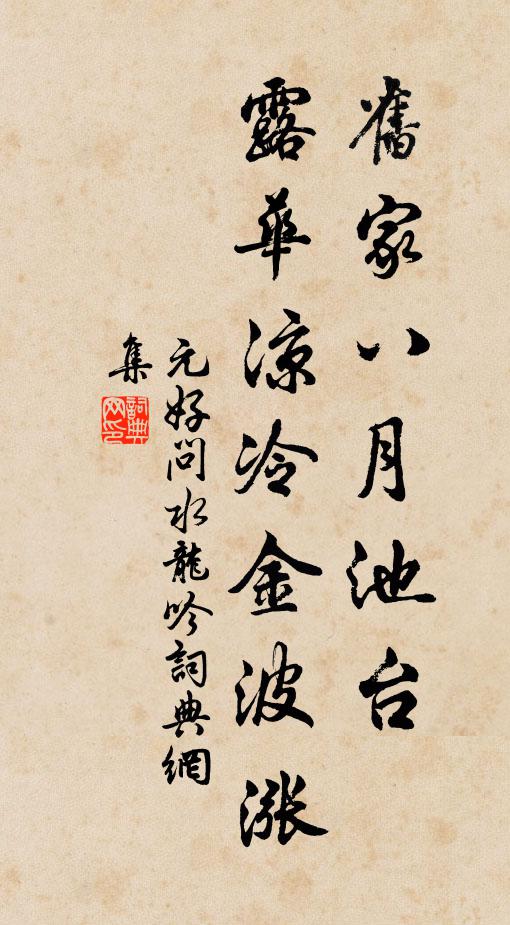 舊家八月池台
露華涼冷金波漲
元好问水龍吟詞典網
集
詞典网印